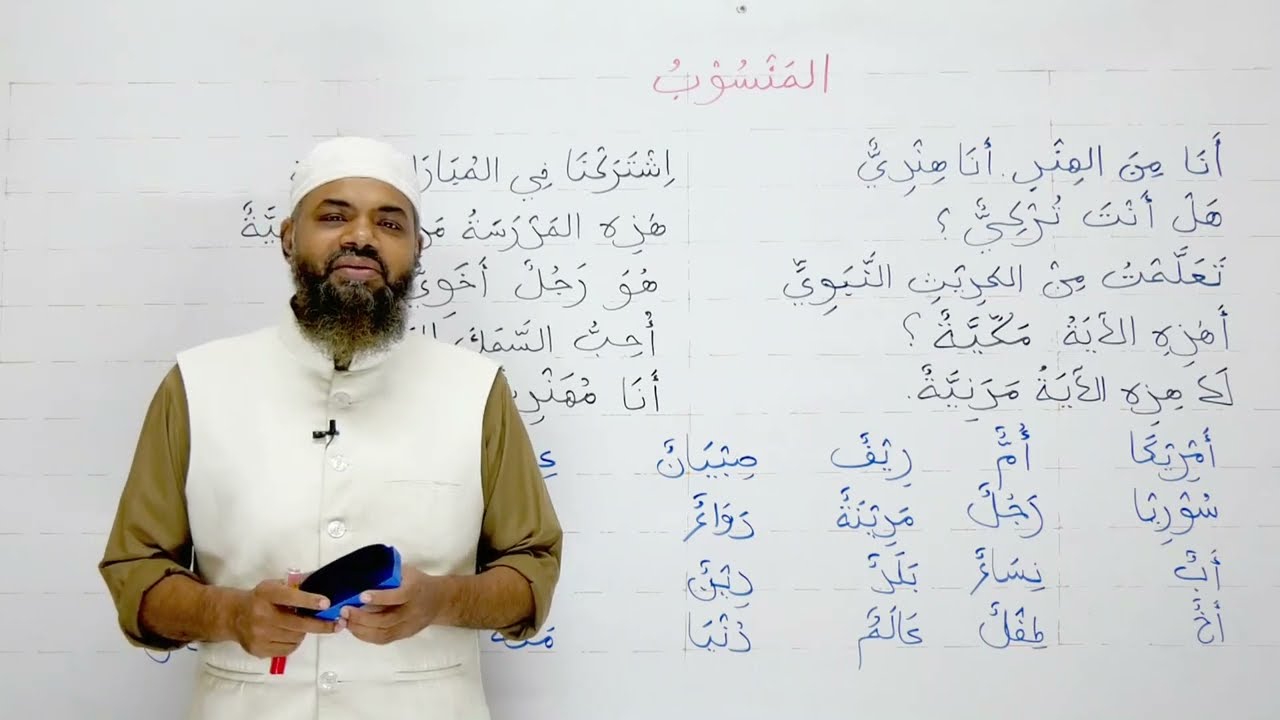 المَنْسُوْبُ
أَنَا مِنَ الهِنْدِ. أَنَا هِنْدِيٌّ
هَلْ أَنْتَ تُرْكِيٌّ ؟
تَعَلَّمْتُ مِنْ الحَدِيْثِ النَّبَوِيِّ
أَهٰذِهِ الآيَةُ مَكِّيَّةٌ ؟
لَا هٰذِهِ الآيَةُ مَدَنِيَّةٌ.
اِشْتَرَكْنَا فِي
هٰذِهِ المَدْرَسَةُ
هُوَ رَجُلٌ أَخَوِيٌّ
أُحِبُّ السَّمَكَ
أَنَا
أَمْرِيْكَا أُمٌّ رِيْفٌ صِبْيَانٌ
سُوْرِيَا رَجُلٌ مَدِيْنَةٌ دَوَاءٌ
أَبٌ نِسَاءٌ بَلَدٌ دِيْنٌ
أَخٌ طِفْلٌ عَالَمٌ دُنْيَا